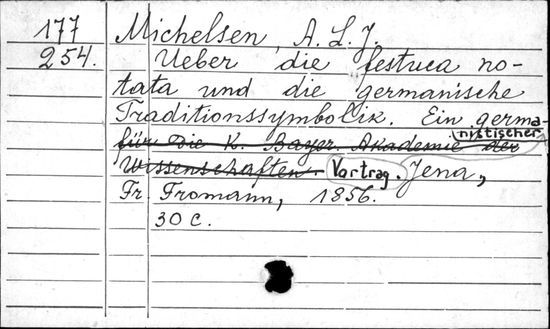 177 Michelsen, A. L. J.
254. Ueber die festuca no-
tata und die germanische
Traditionssymbolik. Ein germa-
nistischer
für die K. Bayer. Akademie der
Wissenschaften. Vortrag. Jena,
Fr. Fromann, 1856.
30 c.